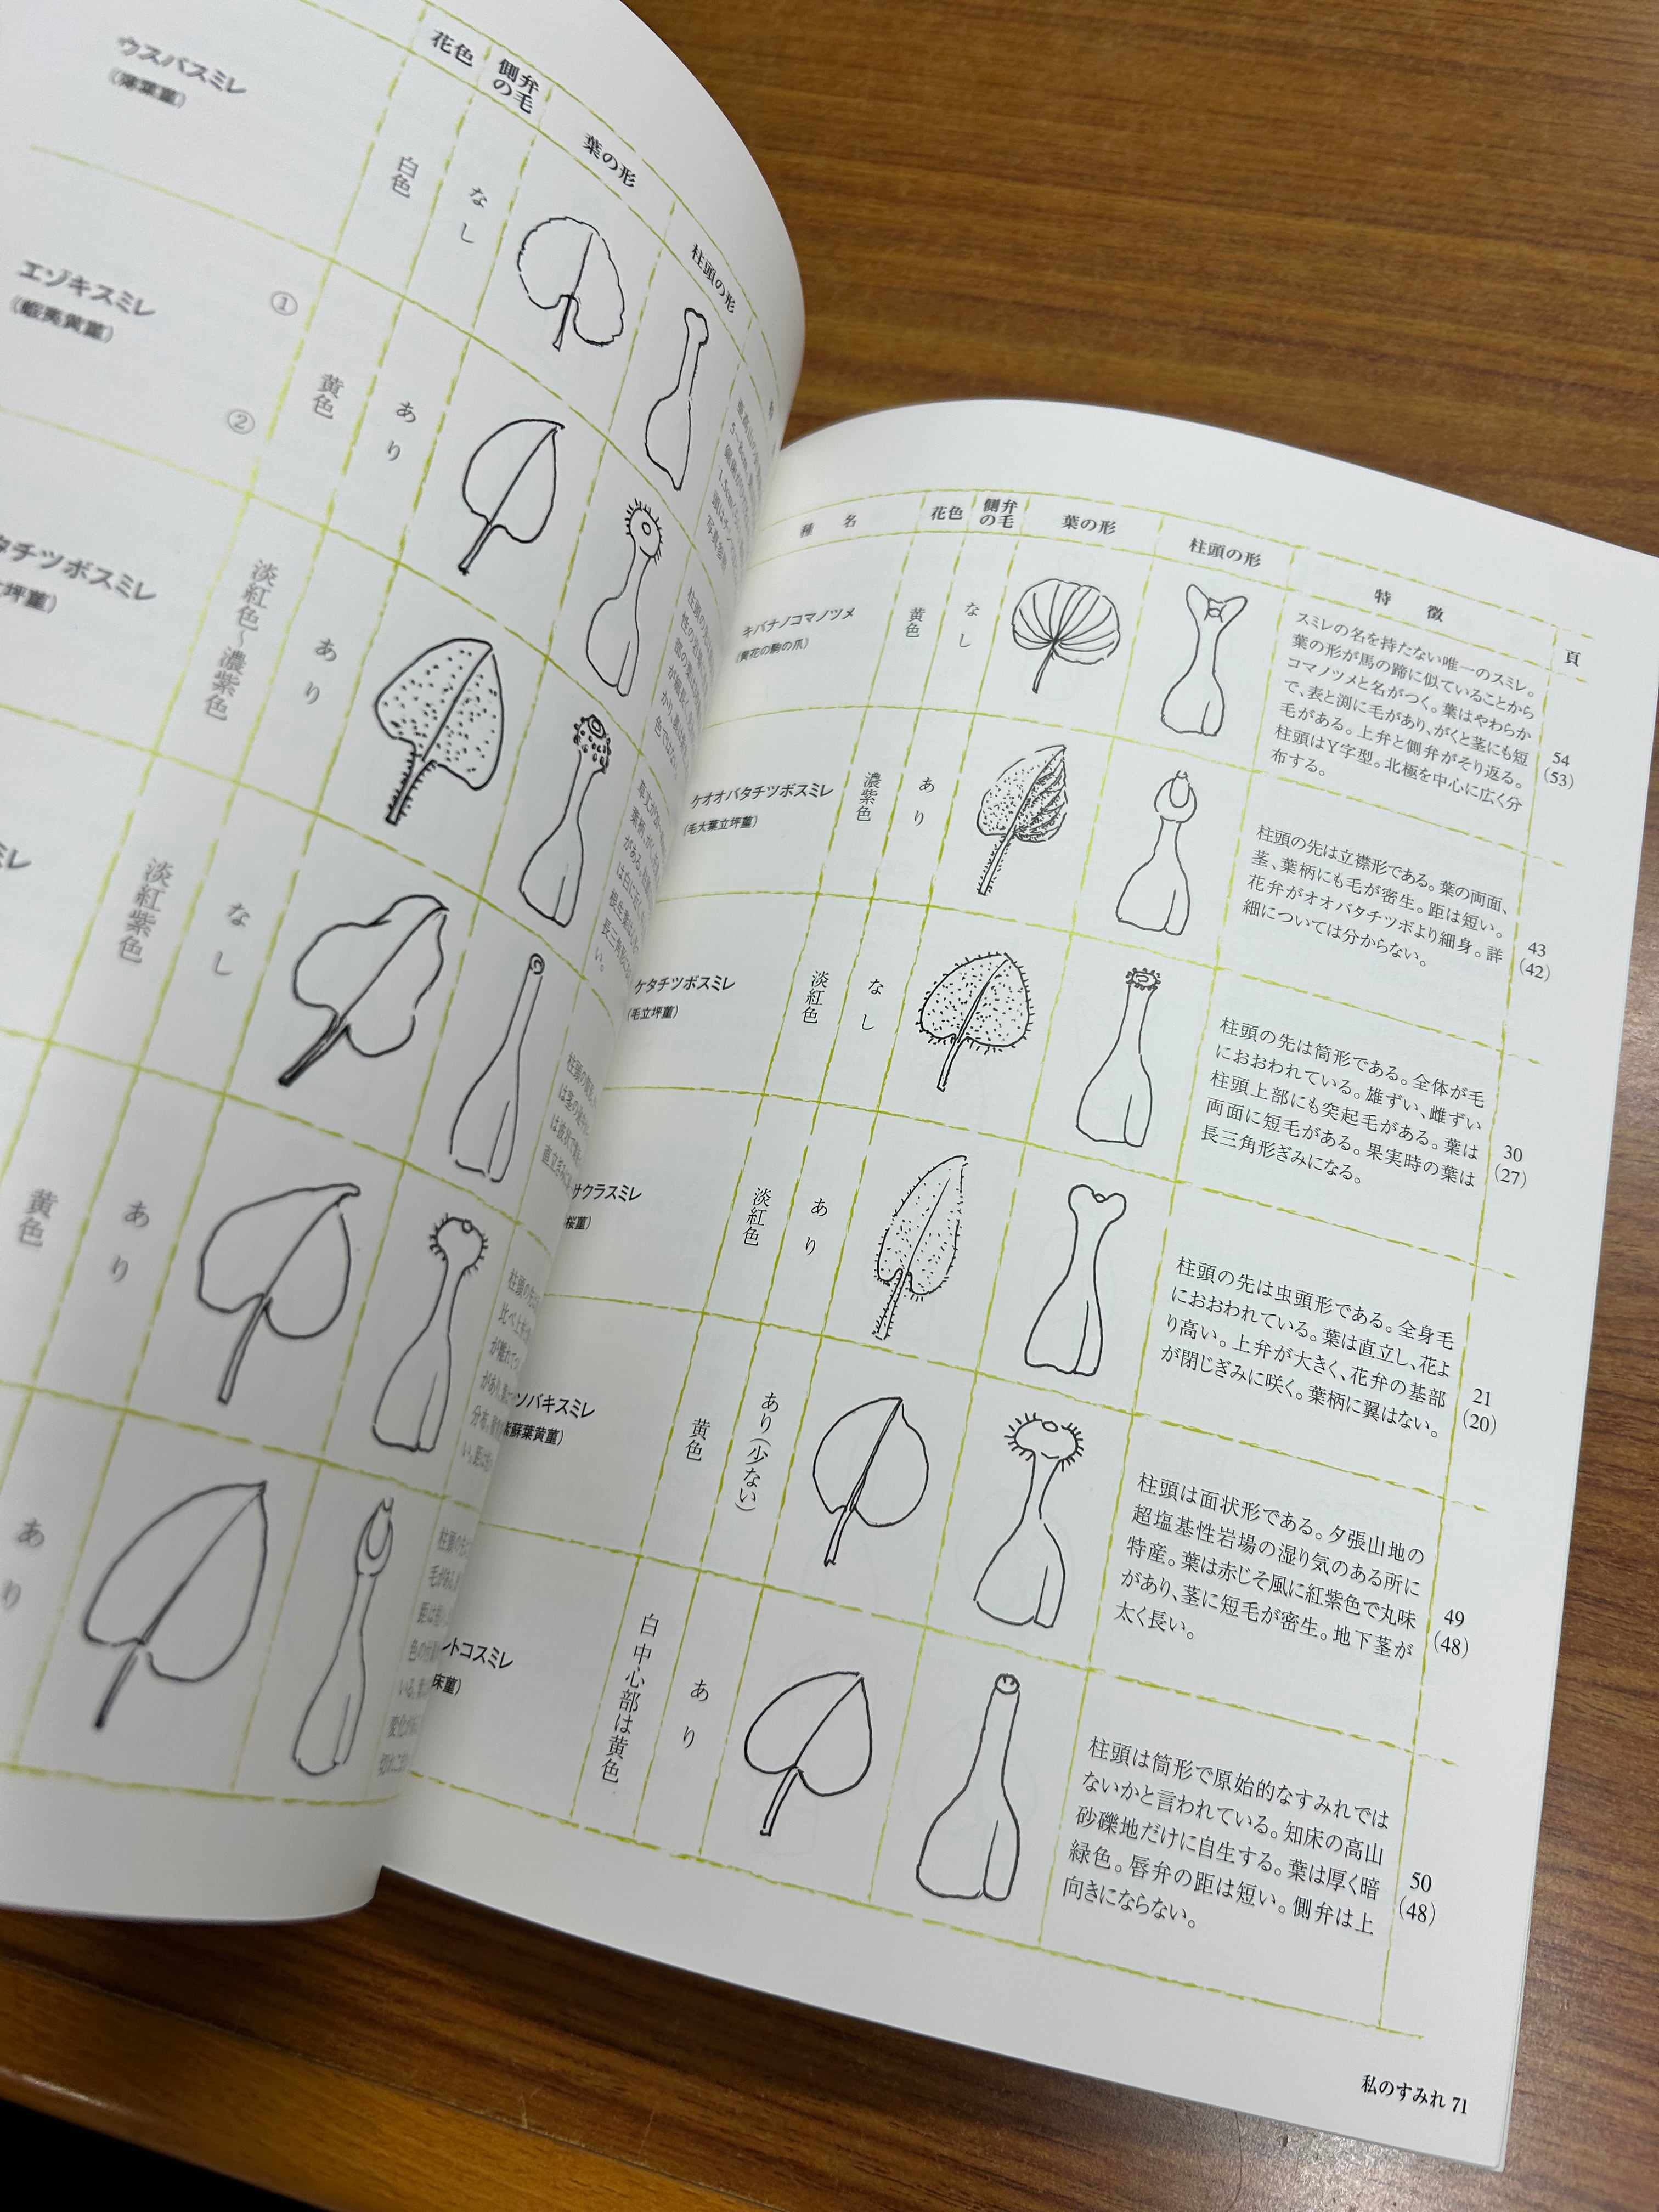 花色
側弁
の毛
葉の形
柱頭の形
ウスバスミレ
(薄葉菫)
白色
なし
エゾキスミレ
(蝦夷黄菫)
①
②
黄色
あり
タチツボスミレ
坪菫)
淡紅色~濃紫色
あり
ミレ
淡紅紫色
なし
黄色
あり
あり
写真参照
色ではない。
い。
種名
花色
側弁
の毛
葉の形
柱頭の形
特徴
頁
キバナノコマノツメ
(黄花の駒の爪)
黄色
なし
スミレの名を持たない唯一のスミレ。
葉の形が馬の蹄に似ていることから
コマノツメと名がつく。葉はやわらか
で、表と渕に毛があり、がくと茎にも短
毛がある。上弁と側弁がそり返る。
柱頭はY字型。北極を中心に広く分
布する。
54
(53)
ケオオバタチツボスミレ
(毛大葉立坪菫)
濃紫色
あり
柱頭の先は立襟形である。葉の両面、
茎、葉柄にも毛が密生。距は短い。
花弁がオオバタチツボより細身。詳
細については分からない。
43
(42)
ケタチツボスミレ
(毛立坪菫)
淡紅色
なし
柱頭の先は筒形である。全体が毛
におおわれている。雄ずい、雌ずい
柱頭上部にも突起毛がある。葉は
両面に短毛がある。果実時の葉は
長三角形ぎみになる。
30
(27)
サクラスミレ
桜菫)
淡紅色
あり
柱頭の先は虫頭形である。全身毛
におおわれている。葉は直立し、花よ
り高い。上弁が大きく、花弁の基部
が閉じぎみに咲く。葉柄に翼はない。
21
(20)
ソバキスミレ
紫蘇葉黄菫)
黄色
あり(少ない)
柱頭は面状形である。夕張山地の
超塩基性岩場の湿り気のある所に
特産。葉は赤じそ風に紅紫色で丸味
があり、茎に短毛が密生。地下茎が
太く長い。
49
(48)
トコスミレ
床菫)
白 中心部は黄色
あり
柱頭は筒形で原始的なすみれでは
ないかと言われている。知床の高山
砂礫地だけに自生する。葉は厚く暗
緑色。唇弁の距は短い。側弁は上
向きにならない。
50
(48)
私のすみれ 71